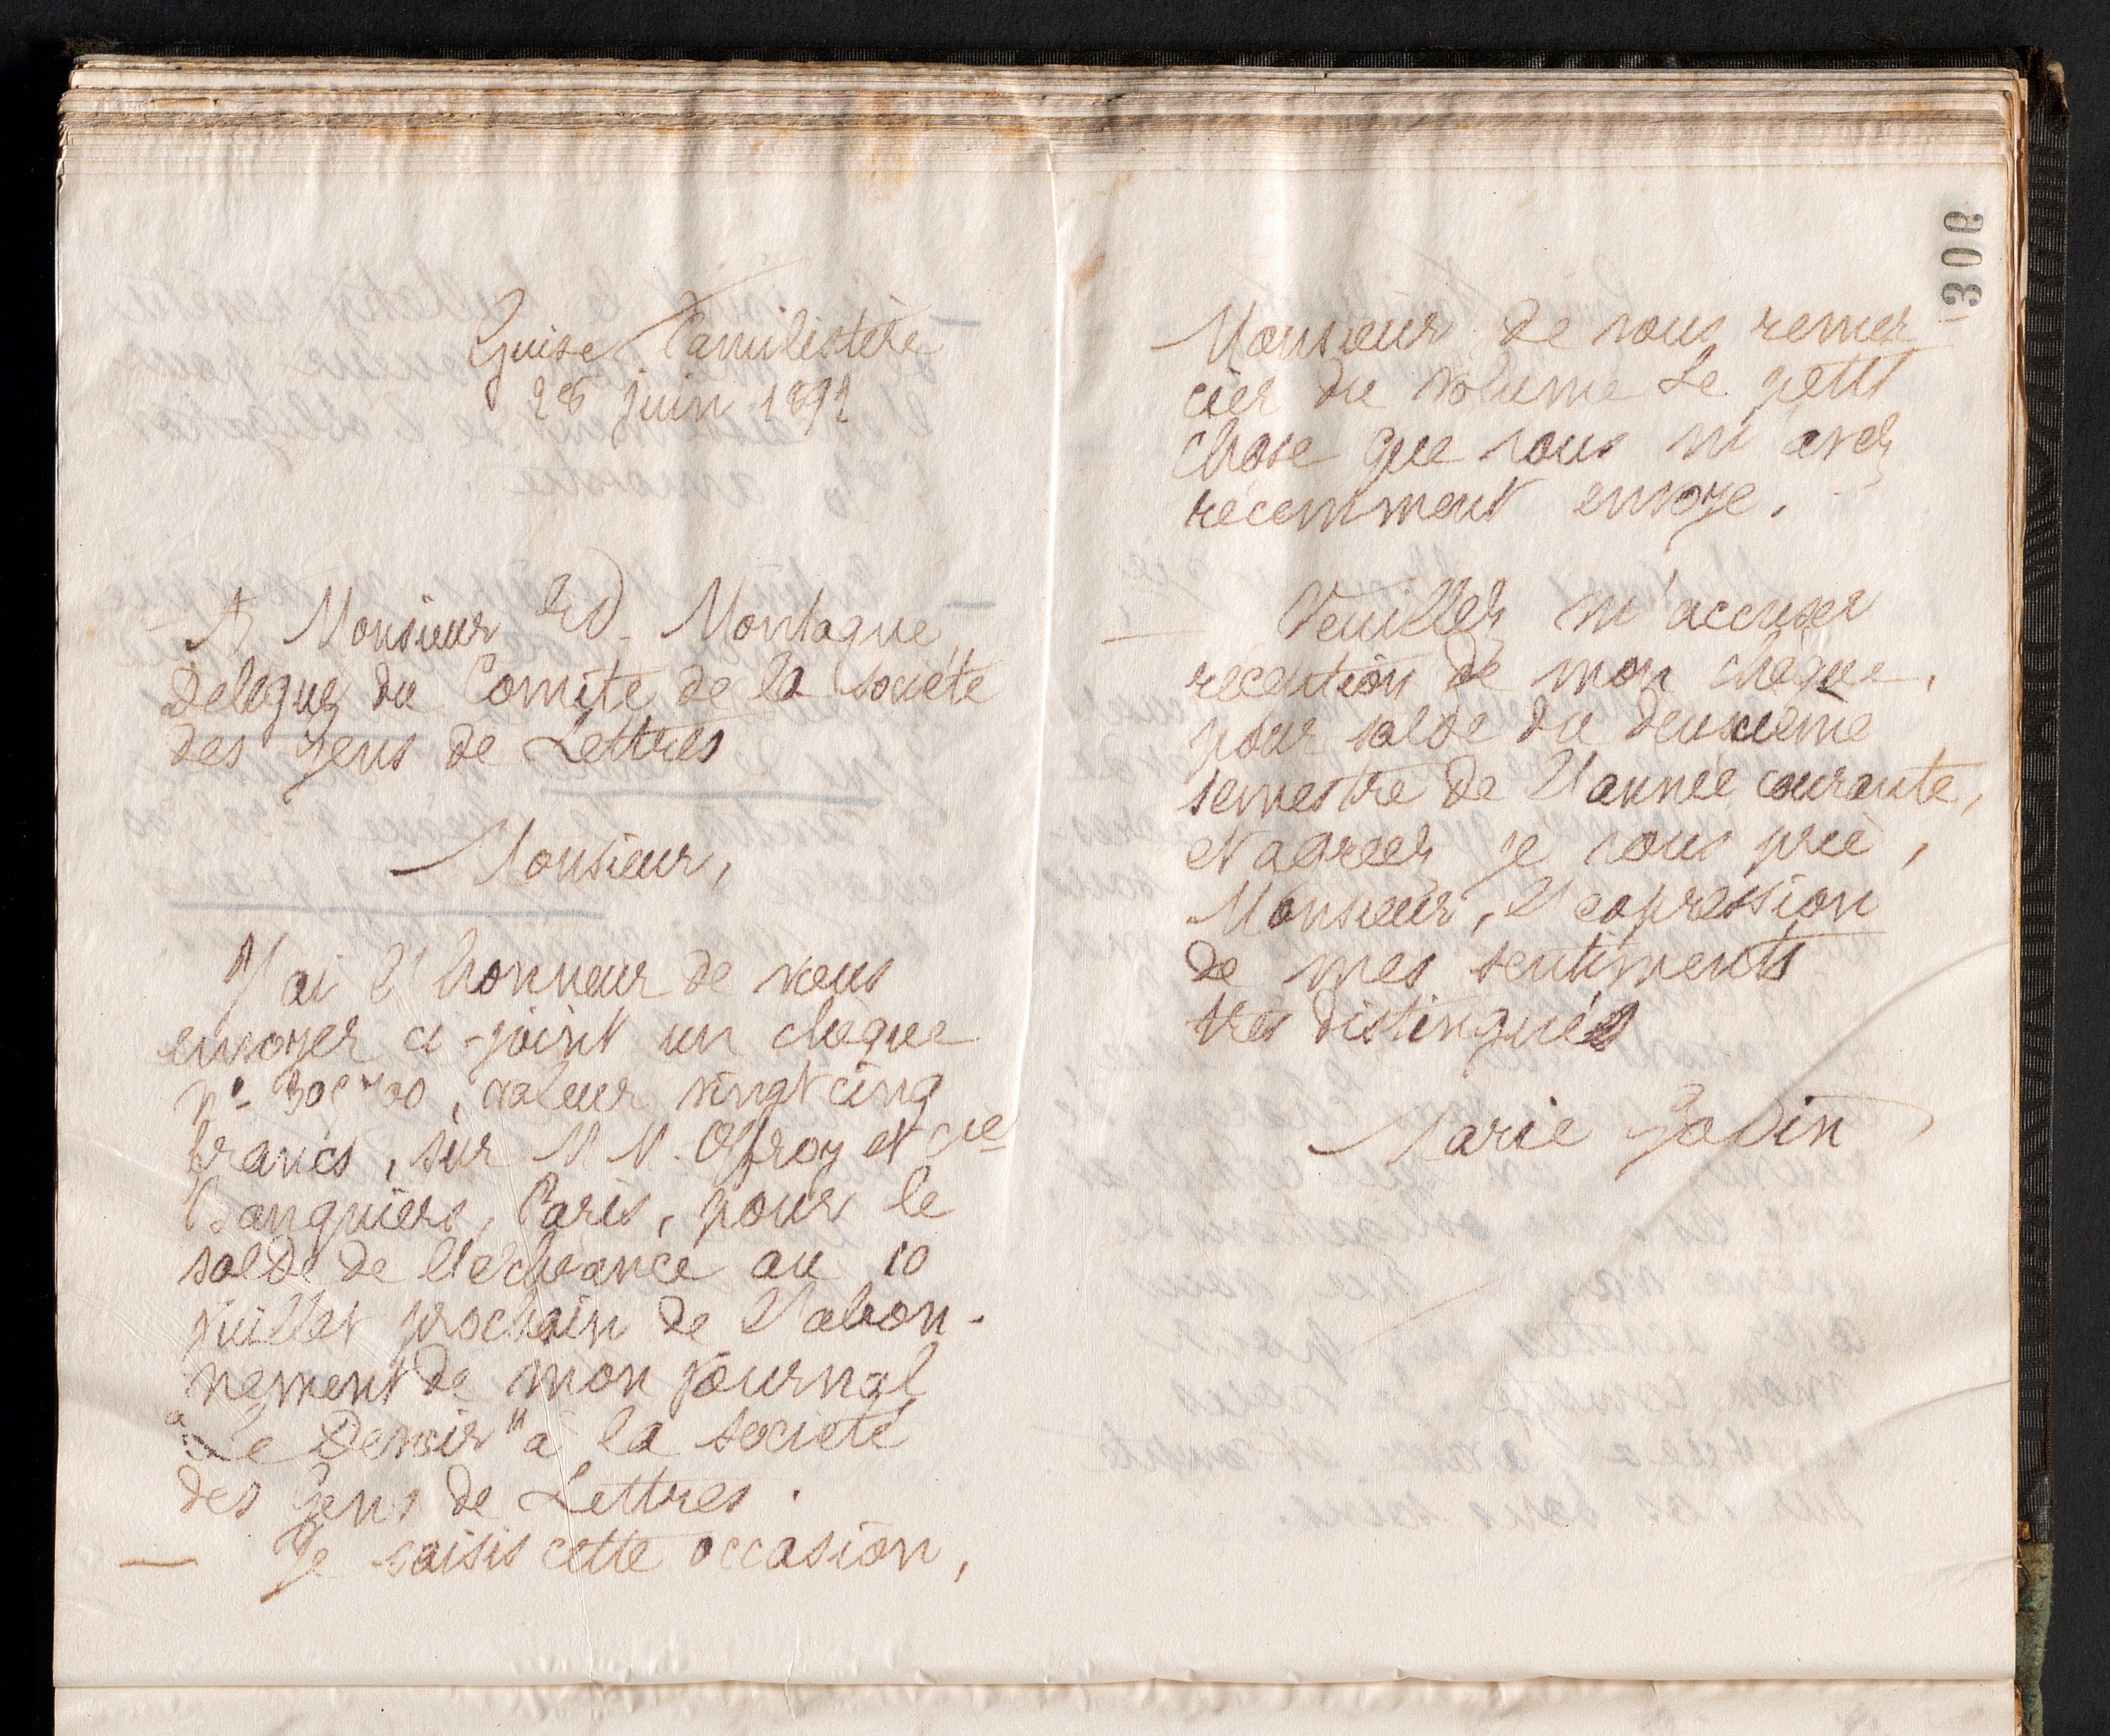 306
Guise Familistère
28 juin 1892
A Monsieur Ed. Montagne,
Délégué du Comité de la Société
des gens de Lettres
Monsieur,
J'ai l'honneur de vous
envoyer ci-joint un chèque
valeur vingt cinq
francs, sur M M. Offroy et Cie
Banquiers, Paris, pour le
solde de l'échéance au 10
juillet prochain de l'abon-
nement de mon journal
"Le Devoir" à la Société
des Gens de Lettres.
Je saisis cette occasion,
Monsieur de vous remer-
cier du volume Le petit
chose que vous m'avez
récemment envoyé.
Veuillez m'accuser
réception de mon chèque,
pour solde du deuxième
semestre de l'année courante,
et agréez je vous prie,
Monsieur, l'expression
de mes sentiments
très distingués
Marie Godin